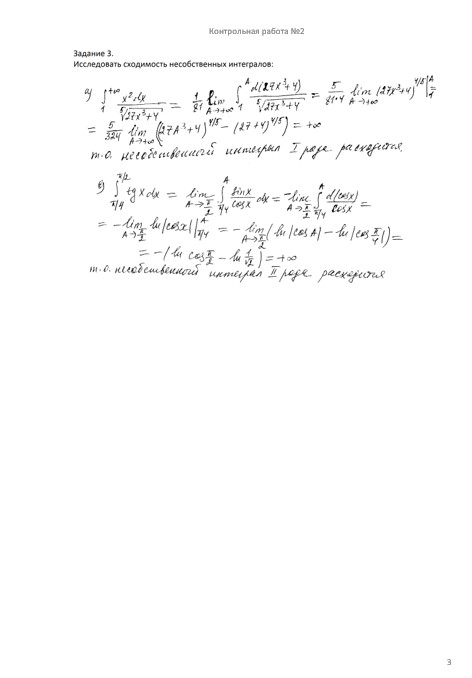 Контрольная работа №2
Задание 3.
Исследовать сходимость несобственных интегралов:
а) ∫₁^{+∞} x² dx / ⁵√(27x³+4) = 1/81 lim_{A→+∞} ∫₁^A d(27x³+4) / ⁵√(27x³+4) = 5/(81·4) lim_{A→+∞} (27x³+4)^{4/5} |₁^A =
= 5/324 lim_{A→+∞} ((27A³+4)^{4/5} − (27+4)^{4/5}) = +∞
т.о. несобственный интеграл I рода расходится.
в) ∫_{π/4}^{π/2} tg x dx = lim_{A→π/2} ∫_{π/4}^A sinx/cosx dx = − lim_{A→π/2} ∫_{π/4}^A d(cosx)/cosx =
= − lim_{A→π/2} ln|cosx| |_{π/4}^A = − lim_{A→π/2} (ln|cosA| − ln|cos π/4|) =
= −(ln cos π/2 − ln 1/√2) = +∞
т.о. несобственный интеграл II рода расходится
3